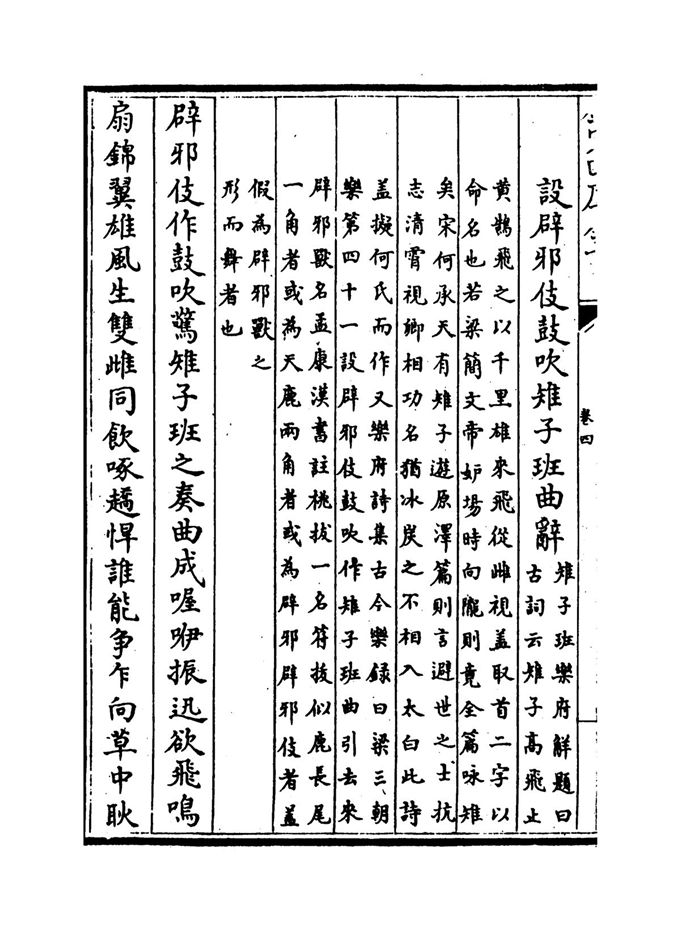 卷四
設辟邪伎鼓吹雉子班曲辭
雉子班樂府解題曰
古詞云雉子高飛止
黃鵠飛之以千里雄來飛從雌視盖取首二字以
命名也若梁簡文帝妒場時向隴則竟全篇咏雉
矣宋何承天有雉子遊原澤篇則言避世之士抗
志清霄視卿相功名猶冰炭之不相入太白此詩
盖擬何氏而作又樂府詩集古今樂録曰梁三朝
樂第四十一設辟邪伎鼓吹作雉子班曲引去來
辟邪獸名孟康漢書註桃拔一名符拔似鹿長尾
一角者或為天鹿兩角者或為辟邪辟邪伎者盖
假為辟邪獸之
形而舞者也
辟邪伎作鼓吹驚雉子班之奏曲成喔咿振迅欲飛鳴
扇錦翼雄風生雙雌同飲啄趫悍誰能争乍向草中耿